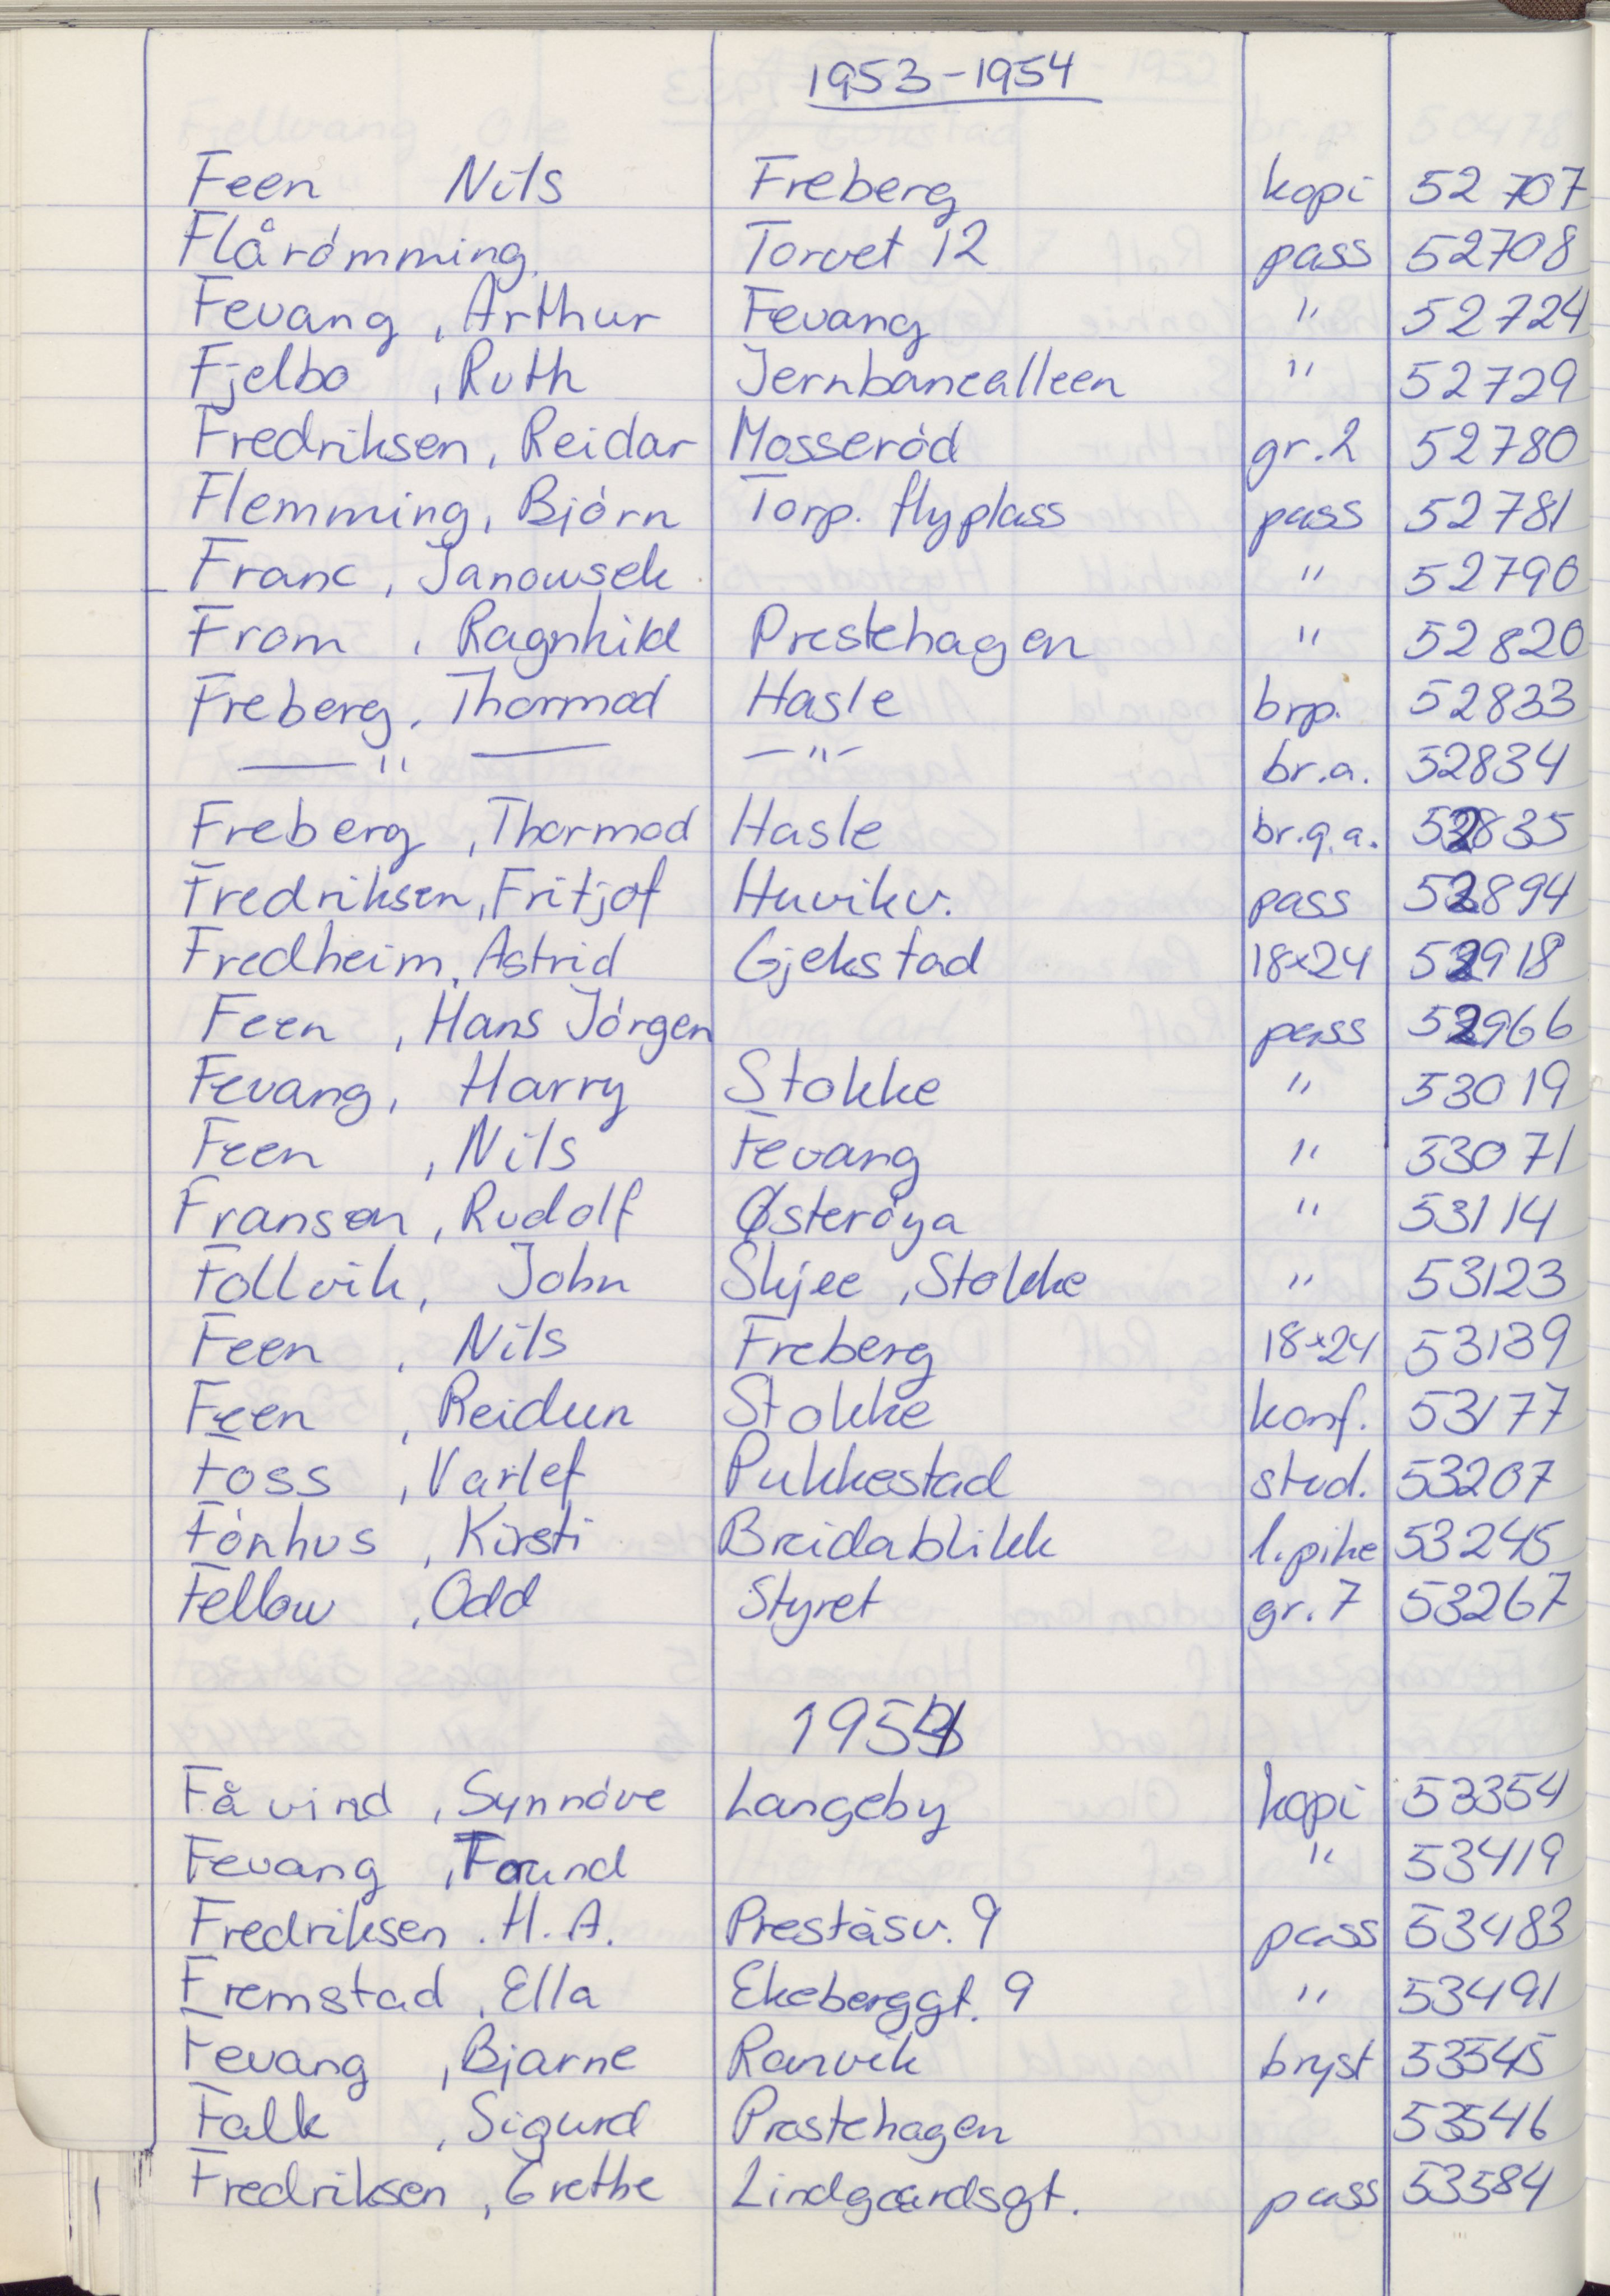 1953-1954
Feen Nils Freberg kopi 52707
Flårömming Torvet 12 pass 52708
Fevang, Arthur Fevang " 52724
Fjelbo, Ruth Jernbanealleen " 52729
Fredriksen, Reidar Mosseröd gr.2 52780
Flemming, Björn Torp. flyplass pass 52781
Franc, Janowsek " 52790
From, Ragnhild Prestehagen " 52820
Freberg, Thormod Hasle brp. 52833
— " — — " — br.a. 52834
Freberg, Thormod Hasle br.g.a. 52835
Fredriksen, Fritjof Huvikv. pass 52894
Fredheim, Astrid Gjekstad 18x24 52918
Feen, Hans Jörgen pass 52966
Fevang, Harry Stokke " 53019
Feen, Nils Fevang " 53071
Fransen, Rudolf Østeröya " 53114
Follvik, John Skjee, Stokke " 53123
Feen, Nils Freberg 18x24 53139
Feen, Reidun Stokke konf. 53177
Foss, Varlef Pukkestad stud. 53207
Fönhus, Kirsti Breidablikk l.pike 53245
Fellow, Odd Styret gr.7 53267
1954
Fåvind, Synnöve Langeby kopi 53354
Fevang, " 53419
Fredriksen. H.A. Preståsv. 9 pass 53483
Fremstad, Ella Ekeberggt. 9 " 53491
Fevang, Bjarne Ranvik bryst 53545
Falk, Sigurd Prestehagen 53546
Fredriksen, Grethe Lindgaardsgt. pass 53584